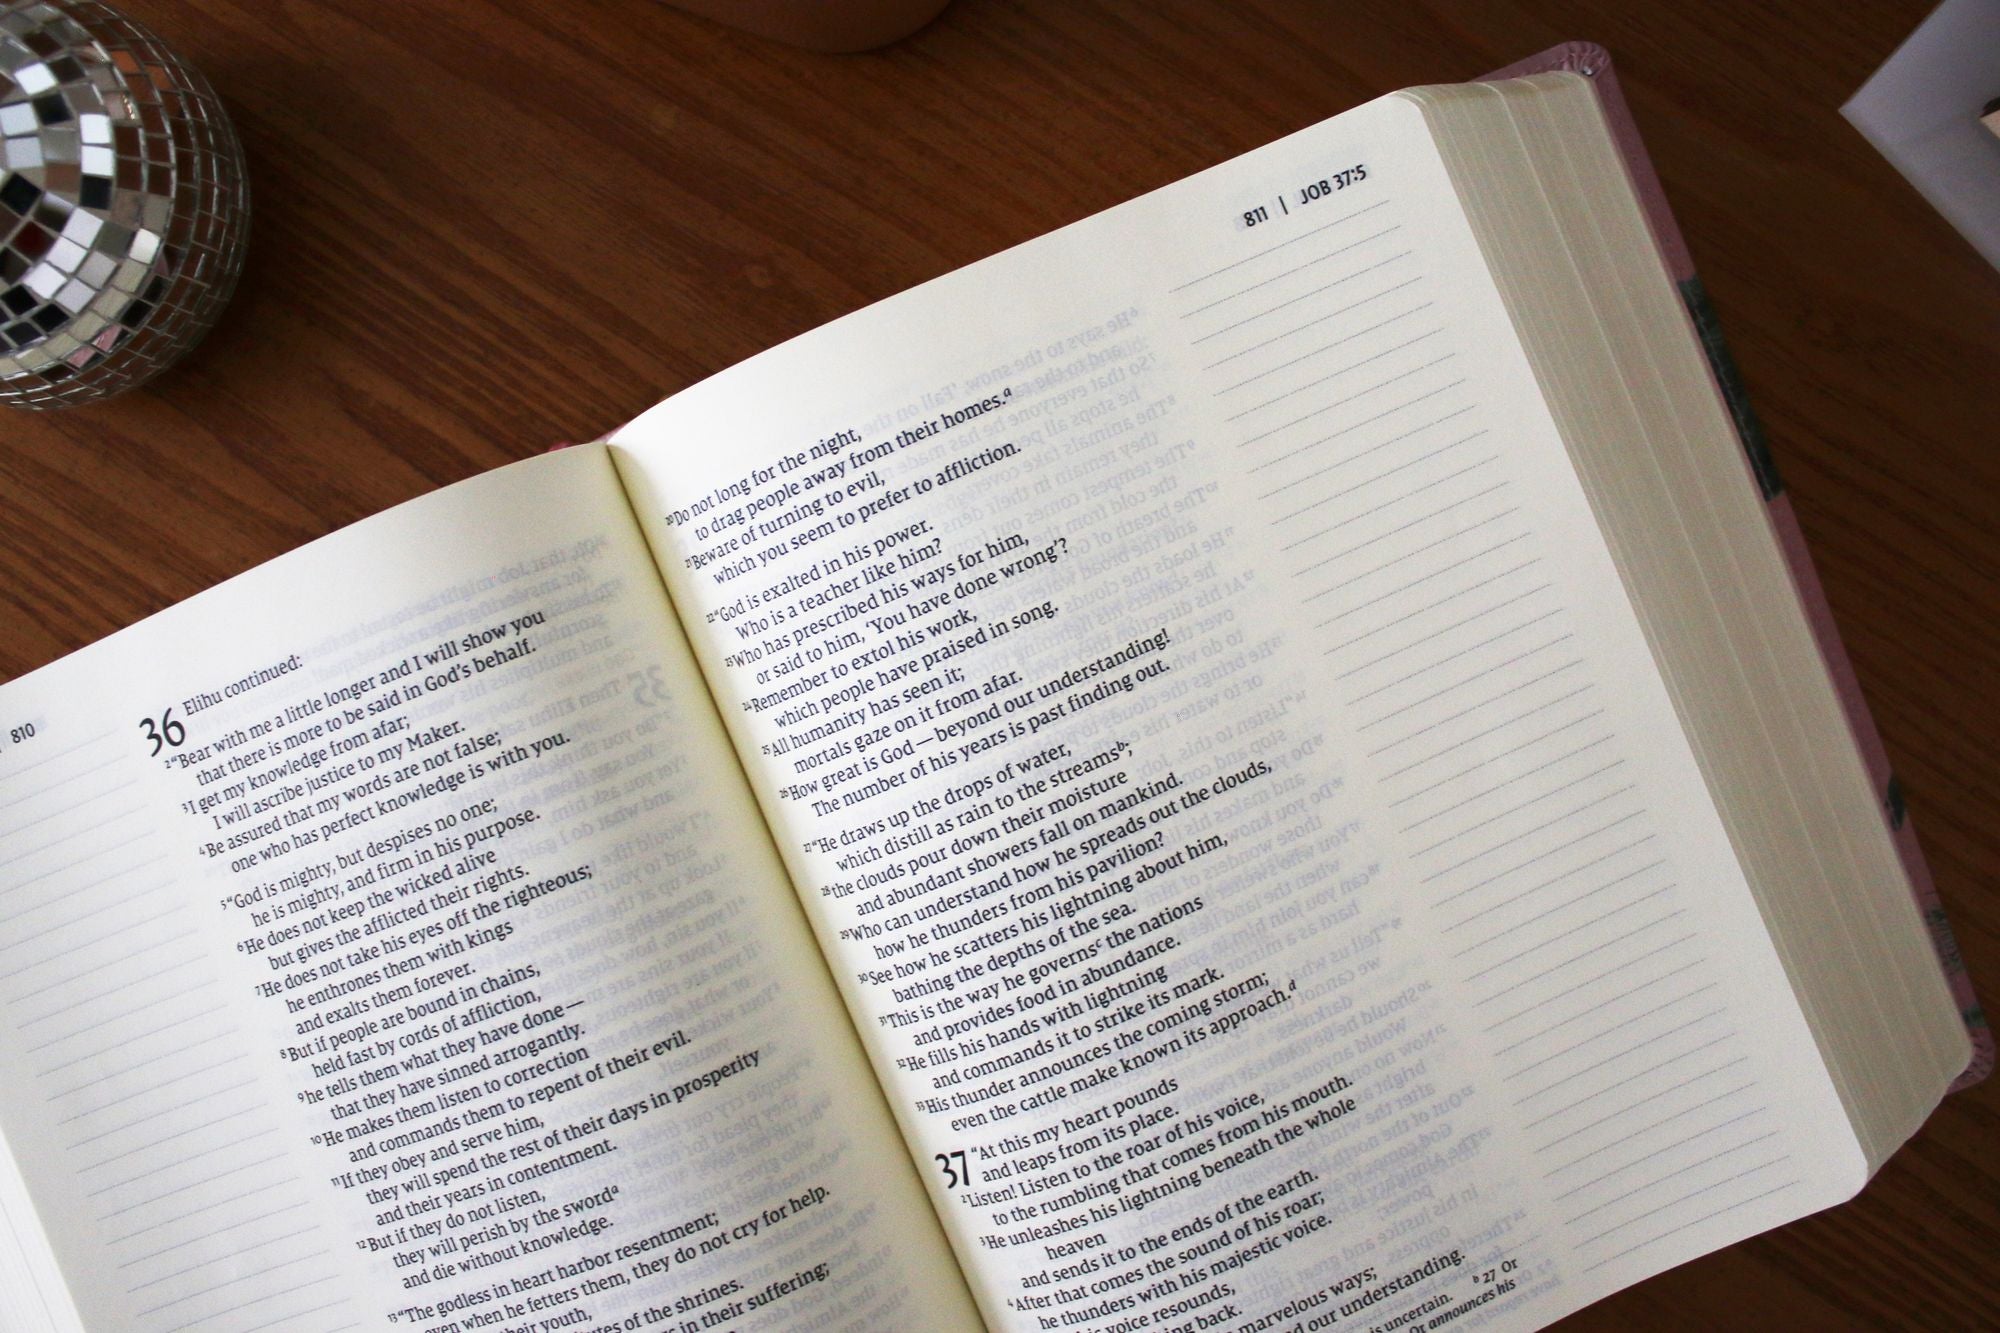 810
36 Elihu continued:
2 “Bear with me a little longer and I will show you
that there is more to be said in God’s behalf.
3 I get my knowledge from afar;
I will ascribe justice to my Maker.
4 Be assured that my words are not false;
one who has perfect knowledge is with you.
5 “God is mighty, but despises no one;
he is mighty, and firm in his purpose.
6 He does not keep the wicked alive
but gives the afflicted their rights.
7 He does not take his eyes off the righteous;
he enthrones them with kings
and exalts them forever.
8 But if people are bound in chains,
held fast by cords of affliction,
9 he tells them what they have done—
that they have sinned arrogantly.
10 He makes them listen to correction
and commands them to repent of their evil.
11 If they obey and serve him,
they will spend the rest of their days in prosperity
and their years in contentment.
12 But if they do not listen,
they will perish by the sword a
and die without knowledge.
13 “The godless in heart harbor resentment;
even when he fetters them, they do not cry for help.
their youth,
of the shrines.
in their suffering;
811 | JOB 37:5
20 Do not long for the night,
to drag people away from their homes. a
21 Beware of turning to evil,
which you seem to prefer to affliction.
22 “God is exalted in his power.
Who is a teacher like him?
23 Who has prescribed his ways for him,
or said to him, ‘You have done wrong’?
24 Remember to extol his work,
which people have praised in song.
25 All humanity has seen it;
mortals gaze on it from afar.
26 How great is God—beyond our understanding!
The number of his years is past finding out.
27 “He draws up the drops of water,
which distill as rain to the streams b;
28 the clouds pour down their moisture
and abundant showers fall on mankind.
29 Who can understand how he spreads out the clouds,
how he thunders from his pavilion?
30 See how he scatters his lightning about him,
bathing the depths of the sea.
31 This is the way he governs c the nations
and provides food in abundance.
32 He fills his hands with lightning
and commands it to strike its mark.
33 His thunder announces the coming storm;
even the cattle make known its approach. d
37 “At this my heart pounds
and leaps from its place.
2 Listen! Listen to the roar of his voice,
to the rumbling that comes from his mouth.
3 He unleashes his lightning beneath the whole
heaven
and sends it to the ends of the earth.
4 After that comes the sound of his roar;
he thunders with his majestic voice.
his voice resounds,
back.
marvelous ways;
our understanding.
is uncertain. b 27 Or
Or announces his